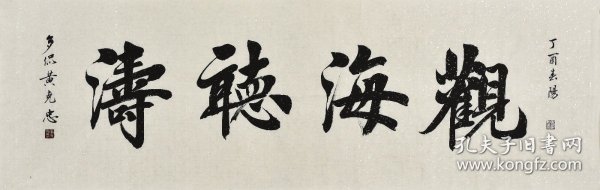 觀海聽濤
丁酉春陽
黄克忠
孔夫子旧书网
www.kongfz.com